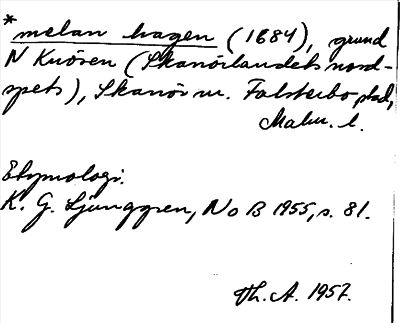 * melan hagen (1684), grund
N Knösen (Skanörlandets nord-
spets), Skanör m. Falsterbo stad,
Malm. l.
Etymologi.
K. G. Ljunggren, NoB 1955, s. 81.
Th. A. 1957.